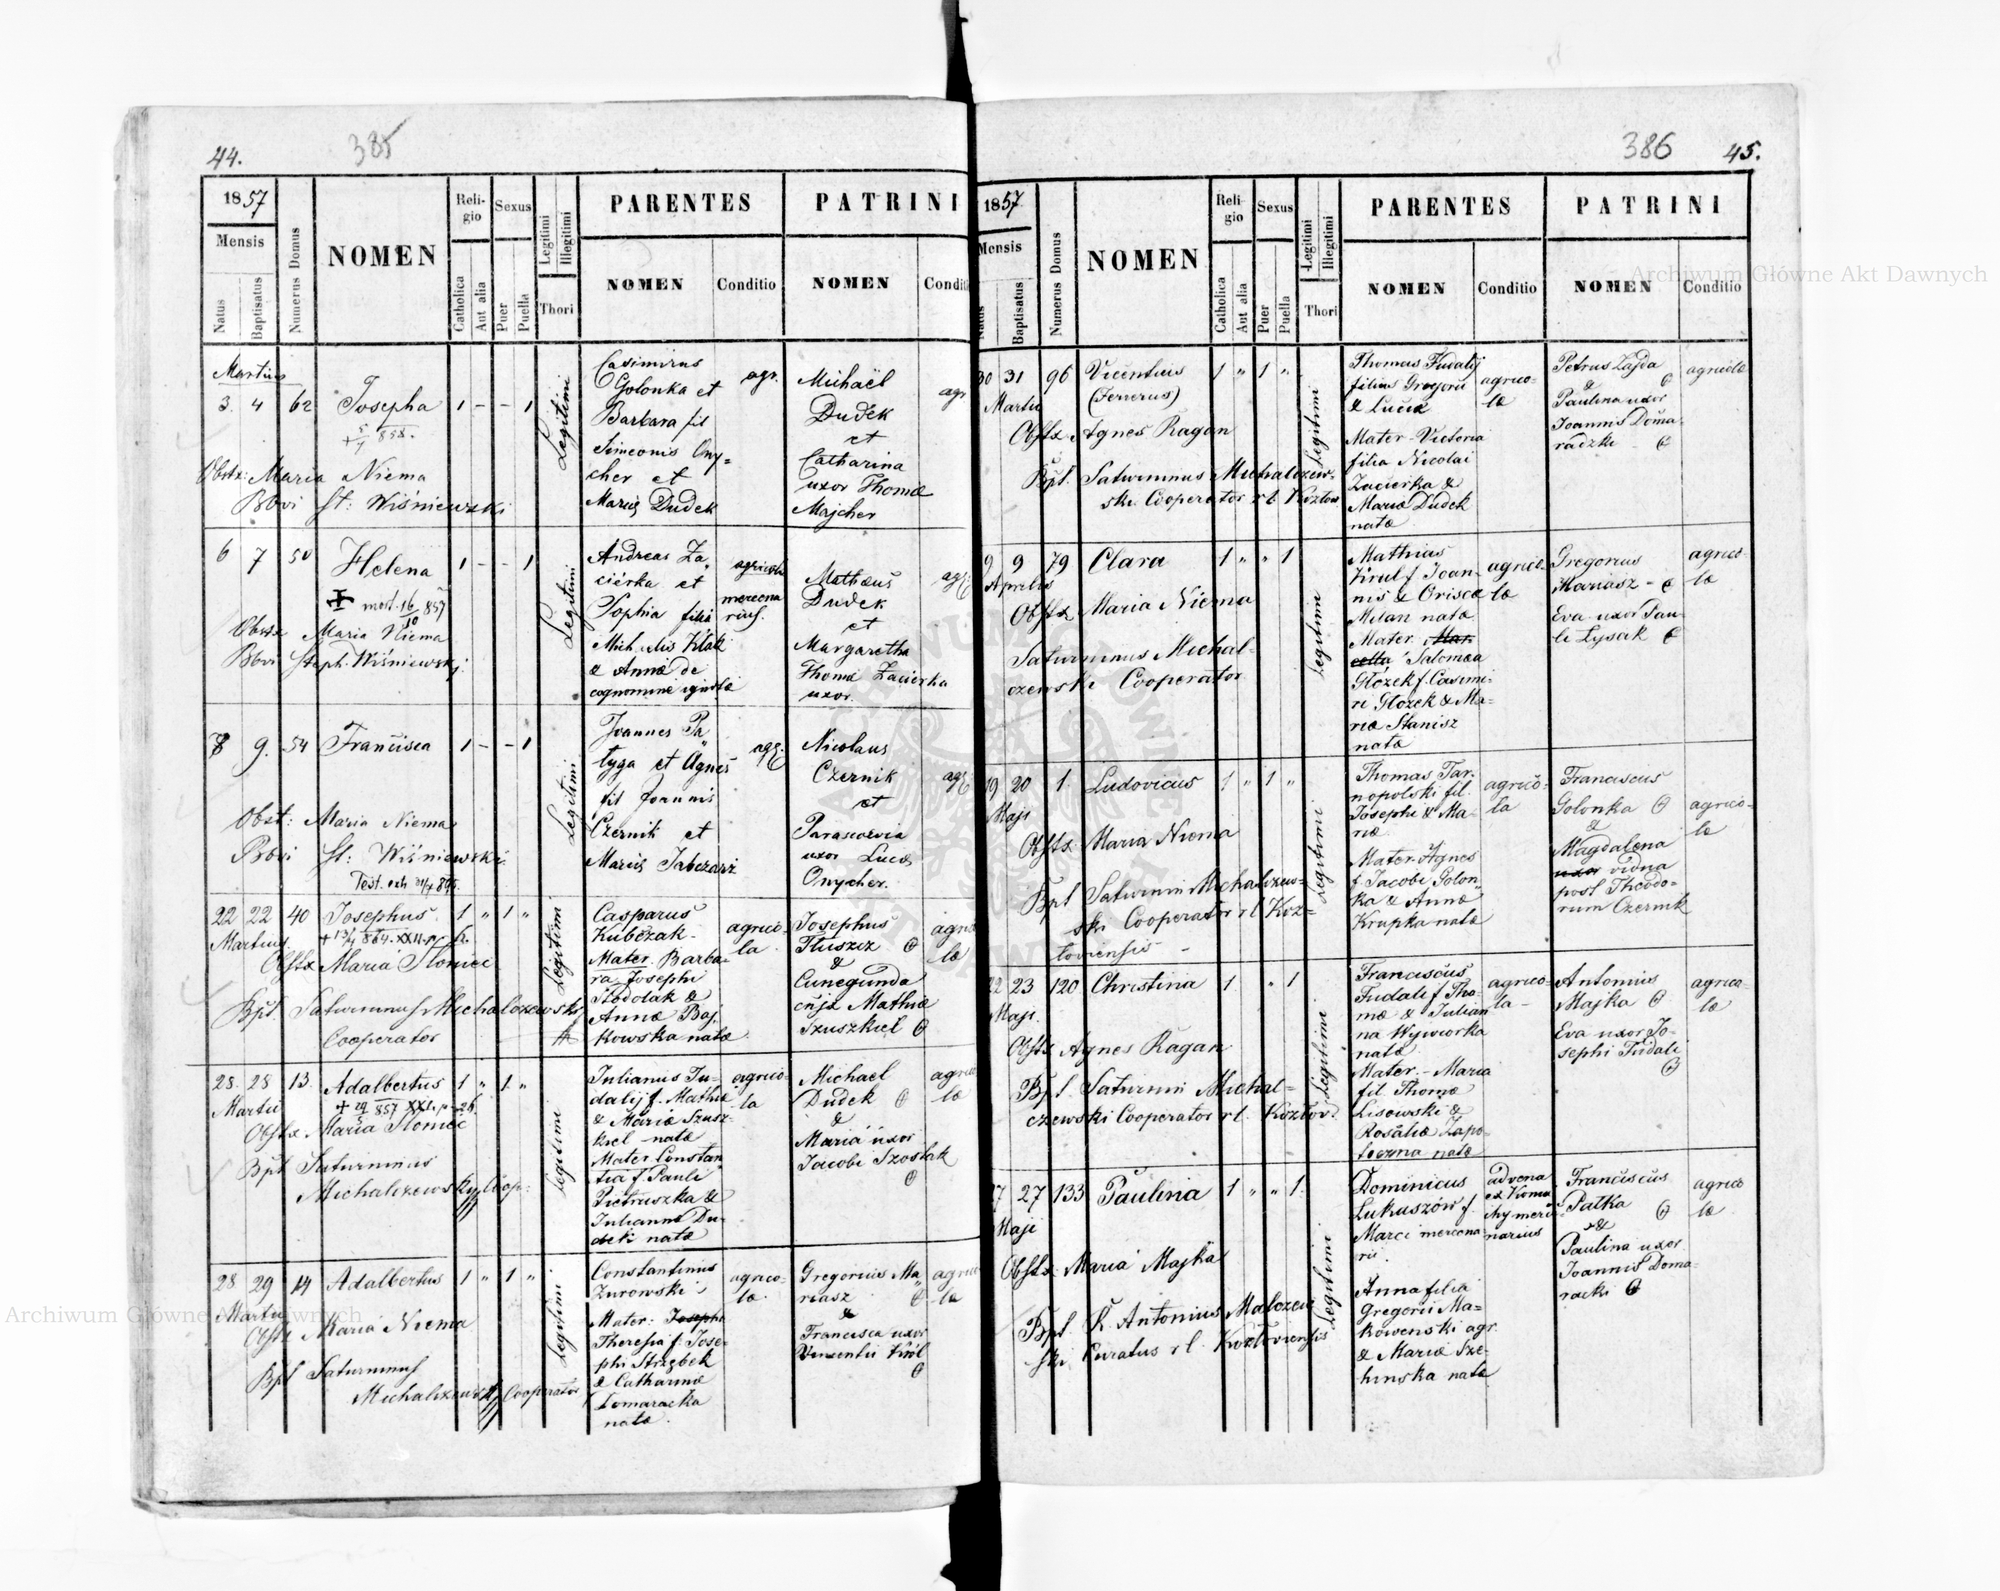 44.
385
1857
Mensis
Natus
Baptisatus
Numerus Domus
NOMEN
Reli-
gio
Catholica
Aut alia
Sexus
Puer
Puella
Legitimi
Illegitimi
Thori
PARENTES
NOMEN
Conditio
PATRINI
NOMEN
Conditi
Martius
3. 4 62 Josepha 1 - - 1
Obstx: Maria Niema
Bbvi St: Wiśniewski
Legitimi
Casimirus
Golonka et
Barbara fil
Simeonis Ony-
cher et
Maria Dudek
agr.
Michaël
Dudek
et
Catharina
uxor Thomæ
Majcher
agr
6 7 50 Helena 1 - - 1
mort. 16/10 857
Obstx Maria Niema
Bbvi Steph. Wiśniewski
Legitimi
Andreas Za-
ciérka et
Sophia filia
Mich.
& Anna de
cognomine ignota
agricola
mercena
rius.
Matheus
Dudek
et
Margaretha
Thomæ Zacierka
uxor.
agr.
8 9. 54 Francisca 1 - - 1
Obst: Maria Niema
Bbvi St: Wiśniewski
Legitimi
Joannes Pa-
tyga et Agnes
fil Joannis
Czernik et
agr.
Nicolaus
Czernik
et
Parascevia
uxor Lucæ
Onycher.
agr.
22 22 40 Josephus 1 " 1 "
Martius
Obstx Maria Słoniec
Bpt. Saturninus Michalczewski
Cooperator
Legitimi
Casparus
Kubczak
Mater. Barba-
ra Josephi
Stodolak &
Annæ Baj-
kowska natæ
agrico-
la
Josephus
Tłuszcz
&
Cunegunda
Mathiæ
Szuszkiel
agrico
læ
28. 28 13. Adalbertus 1 " 1 "
Martii
Obstx Maria Słoniec
Bpt Saturninus
Michalczewski Coop.
Legitimi
Julianus Fu-
dalij f. Mathiæ
& Mariæ Szusz-
kiel natæ
Mater Constan
tia f. Pauli
Pietruszka &
Julianna Du-
natæ
agrico-
la
Michael
Dudek
&
Maria uxor
Jacobi Szostak
agrico
læ
28 29 14 Adalbertus 1 " 1 "
Martii
Obstx Maria Niema
Bpt Saturninus
Michalczewski Cooperator
Legitimi
Constantinus
Żurowski
Mater: Josepha
Theresia f. Jose-
phi Strzębek
& Catharinæ
Domaracka
natæ.
agrico-
læ.
Gregorius Ma-
riasz
&
Francisca uxor
Vincentii Król
agrico
læ
386
45.
1857
Mensis
Natus
Baptisatus
Numerus Domus
NOMEN
Reli-
gio
Catholica
Aut alia
Sexus
Puer
Puella
Legitimi
Illegitimi
Thori
PARENTES
NOMEN
Conditio
PATRINI
NOMEN
Conditio
30 31 96 Vicentius 1 " 1 "
Martii (Ferrerus)
Obstx Agnes Ragan
Bpt. Saturninus Michalczew-
ski Cooperator rl. Kozłow
Legitimi
Thomas Fudalij
filius Gregorii
& Luciæ
Mater Victoria
filia Nicolai
Zacierka &
Mariæ Dudek
natæ
agrico-
læ
Petrus Zajda
&
Paulina uxor
Joannis Doma-
radzki
agricolæ
9 9 79 Clara 1 " " 1
Aprilis
Obstx Maria Niema
Saturninus Michal-
czewski Cooperator
Legitimi
Mathias
Król f. Joan-
nis & Orisca
Milan natæ
Mater Mar-
cella Salomea
Głózek f. Casimi-
ri Głozek & Ma-
riæ Stanisz
natæ
agrico-
læ
Gregorius
Mariasz
Eva uxor Pau-
li Łysak
agrico-
læ
19 20 1. Ludovicus 1 " 1 "
Maji
Obstx Maria Niema
Bpt Saturnin Michalczew-
ski Cooperator rl Koz-
łoviensis
Legitimi
Thomas Tar-
nopolski fil.
Josephi & Ma-
riæ
Mater Agnes
f. Jacobi Golon-
ka & Annæ
Krupka natæ
agrico-
la
Franciscus
Golonka
&
Magdalena
uxor vidua
post Theodo-
rum Czernik
agrico-
læ
22 23 120 Christina 1 " 1
Maji.
Obstx Agnes Ragan
Bpt. Saturnin Michal-
czewski Cooperator rl. Kozłov.
Legitimi
Franciscus
Fudali f Tho-
mæ & Julian
na Wywiorka
natæ
Mater. - Maria
fil. Thomæ
Lisowski &
Rosaliæ Zapo-
toczna natæ
agrico-
la
Antonius
Majka
Eva uxor Jo-
sephi Fudali
agrico
læ
27 27 133 Paulina 1 " " 1.
Maji
Obstx Maria Majka
Bpt. X. Antonius Malczew
ski Curatus rl. Kozłoviensis
Legitimi
Dominicus
Lukuszów f.
Marci mercena
rii
Anna filia
Gregorii Ma-
kowenski agr.
& Mariæ Sze-
linska natæ
advena
narius
Franciscus
Patka
&
Paulina uxor
Joannis Doma-
racki
agrico
læ
Archiwum Główne Akt Dawnych
Archiwum Główne Akt Dawnych